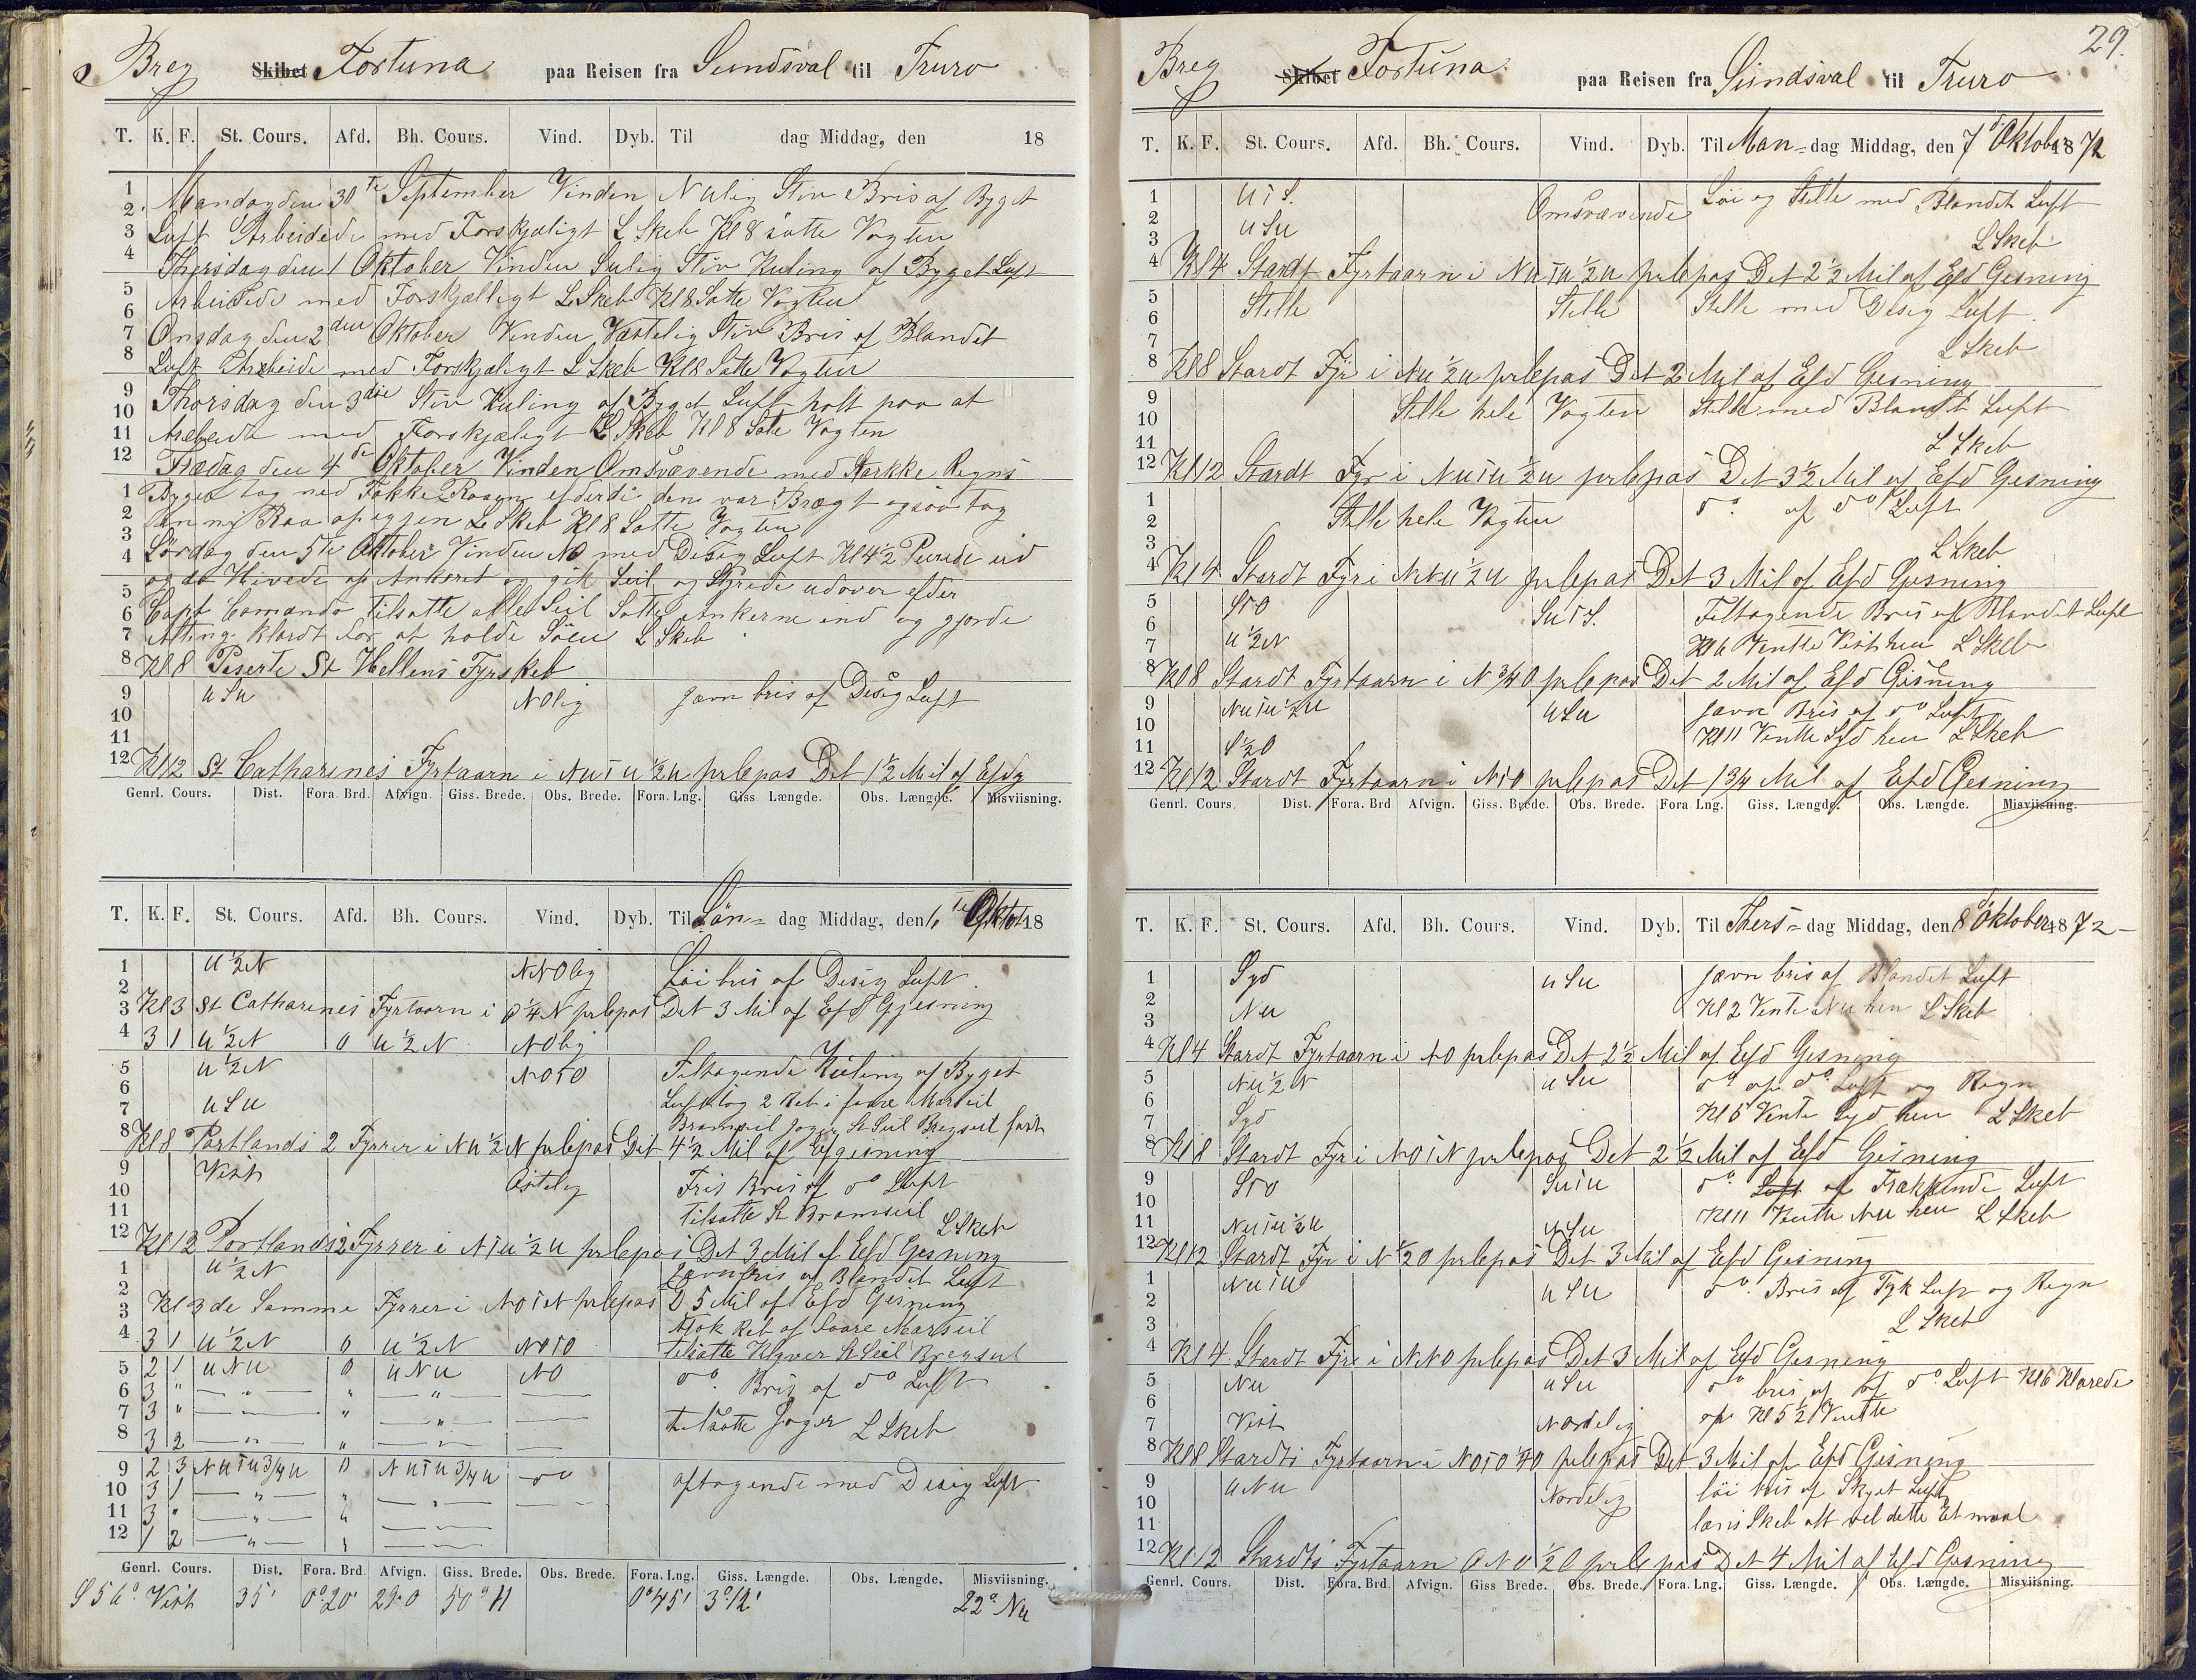 Breg Skibet Fortuna paa Reisen fra Sundsval til Truro
T. K. F. St. Cours. Afd. Bh. Cours. Vind. Dyb. Til dag Middag, den 18
1 Mandag den 30te September Vinden NWlig Stiv Bris af Byget
2 Luft Arbeidede med Forskjæligt L Skeb Kl 8 satte Vagten
3
4 Thirsdag den 1 Oktober Vinden Sulig Stiv Kuling af Byget Luft
5 Arbeidede med Forskjælligt L Skeb Kl 8 Satte Vagten
6
7 Onsdag den 2den Oktober Vinden Vastelig Stiv Bris af Blandet
8 Luft Arbeide med Forskjæligt L Skeb Kl 8 Satte Vagten
9 Thorsdag den 3die Stiv Kuling af Byget Luft holt paa at
10
11 Arebeide med Forskjæligt L Skeb Kl 8 Sate Vagten
12 Fredag den 4de Oktober Vinden Omsvævende med Starkke Regns
1 Byger tog ned Fokke Raaen efderdi den var Brægt ogsaa tog
2 en ny Raa op egjen L Skeb Kl 8 Satte Vagten
3
4 Lördag den 5te Oktober Vinden NO med Desig Luft Kl 4½ Purede ud
5 og da Hivede op Ankeret og gik Seil og Styrede udover efder
6 Capt Comando Tilsatte alle Seil Satte Ankerne ind og gjorde
7 Alting klardt for at holde Söen L Skeb
8 Kl 8 Peserte St Hellens Fyrskeb
9 W S W NOlig javn bris af Desig Luft
10
11
12 Kl 12 St Catharines Fyrtaarn i NW i W ½ W prlepas Det 1½ Mil af Efdg
Genrl. Cours. Dist. Fora. Brd. Afvign. Giss. Brede. Obs. Brede. Fora. Lng. Giss Længde. Obs. Længde. Misviisning.
T. K. F. St. Cours. Afd. Bh. Cours. Vind. Dyb. Til Sön= dag Middag, den 6te Oktob 18
1 W ½ N NNOlig Löi bris af Desig Luft
2
3 Kl 3 St Catharines Fyrtaarn i O ¼ N prlepas Det 3 Mil af Efd Gjesning
4 3 1 W ½ N 0 W ½ N NOlig
5 W ½ N NO i O Teltagende Kuling af Byget
6
7 W S W Luft tog 2 Reb i fore Marseil
8 Kl 8 Portlands 2 Fyrrer i NW ½ N prlepas Det 4½ Mil af Efgisning
9 Vest Östelig Fris Bris af do Luft
10
11 Tilsatte St Bramseil
12 Kl 12 Portlands 2 Fyrrer i N i W ½ W prlepas Det 3 Mil af Eefd Gesning L Skeb
1 W ½ N Javn bris af Blandet Luft
2
3 Kl 3 de Samme Fyrrer i NO i N prlepas D 5 Mil af Efd Gjesning
tok Reb af Foare Marseil
4 3 1 W ½ N 0 W ½ N NO i O telsatte Klyver St Seil Bregseil
5 2 1 W N W 0 W N W NO do Bris af do Luft
6 3 " — " — " — " — —
7 3 " — " — " — " — —
8 3 2 — " — " — " — — telsatte Jager L Skeb
9 2 3 NW i W ¾ W 0 NW i W ¾ W do aftagende med Disig Luft
10 3 1 — " — " — " — —
11 3 " — " — " — " —
12 1 2 — " — " — " —
Genrl. Cours. Dist. Fora. Brd. Afvign. Giss. Brede. Obs. Brede. Fora. Lng. Giss. Længde. Obs. Længde. Misviisning.
S 56° Vest 35' 0°20' 29.0 50° 11 0°45' 3°12' 22° NW
29.
Breg Skibet Fortuna paa Reisen fra Sundsval til Truro
T. K. F. St. Cours. Afd. Bh. Cours. Vind. Dyb. Til Man= dag Middag, den 7d Oktober 1872
1 W i S. Omsvævende Löi og Stelle med Blandet Luft
2 W S W
3 L Skeb
4 Kl 4 Stardt Fyrtaarn i NW i W ½ W prlepas Det 2½ Mil af Efd Gesning
5 Stelle Stelle Stelle med Desig Luft
6
7 L Skeb
8 Kl 8 Stardt Fyr i NW ½ W prlepas Det 2 Mil af Efd Gesning
9 Stelle hele Vagten Stelle med Blandt Luft
10
11 L Skeb
12 Kl 12 Stardt Fyr i NW i W ½ W prlepas Det 3½ Mil af Efd Gesning
1 Stelle hele Vagten do af do Luft
2
3 L Skeb
4 Kl 4 Stardt Fyr i NW ½ W prlepas Det 3 Mil af Efd Gesning
5 S i O SW i S. Teltagende Bris af Blandet Luft
6
7 W ½ N Kl 6 Ventte Vest hen L Skeb
8 Kl 8 Stardt Fyrtaarn i N ¾ O prlepas Det 2 Mil af Efd Gisning
9 NW i W ½ W W S W javn Bris af do Luft
10 Kl 11 Ventte Syd hen L Skeb
11 S ½ O
12 Kl 12 Stardt Fyrtaarn i N i O prlepas Det 1¾ Mil af Eefd Gesning
Genrl. Cours. Dist. Fora. Brd Afvign. Giss. Brede. Obs. Brede. Fora Lng. Giss. Længde. Obs. Længde. Misviisning.
T. K. F. St. Cours. Afd. Bh. Cours. Vind. Dyb. Til Thers= dag Middag, den 8d Oktober 1872 –
1 Syd W S W javn bris af Blandet Luft
2 Kl 2 Vente NW hen L Skeb
3 NW
4 Kl 4 Stardt Fyrtaarn i NO prlepas Det 2½ Mil af Eefd Gesning
5 NW ½ N W S W do af do Luft og Regn
6 Kl 6 Vente Syd hen L Skeb
7 Syd
8 Kl 8 Stardt Fyr i NO i N prlepas Det 2½ Mil af Efd Gesning
9 S i O SW i W do Luft af Trækkende Luft
10 Kl 11 Ventte NW hen L Skeb
11 NW i W ½ W W S W
12 Kl 12 Stardt Fyr i N ½ O prlepas Det 3 Mil af Eefd Gesning
1 NW i W W S W do. Bris af Tyk Luft og Regn
2
3 L Skeb
4 Kl 4 Stardt Fyr i NNO prlepas Det 3 Mil af Eefd Gesning
5 NW W S W do bris af do Luft Kl 6 Klarede
6 op Kl 5½ Ventte
7 Vest Nordelig
8 Kl 8 Stardts Fyrtaarn i NO i O ½ O prlepas Det 3 Mil af Efd Gesning
9 W N W Nordelig löi bris af Skyet Luft
10
11 læns Skeb alt vel dette Etmaal
12 Kl 12 Stardts Fyrtaarn O N O ½ O prlepas Det 4 Mil af Efd Gesning
Genrl. Cours. Dist. Fora. Brd. Afvign. Giss Brede. Obs. Brede. Fora. Lng. Giss. Længde. Obs. Længde. Misviisning.